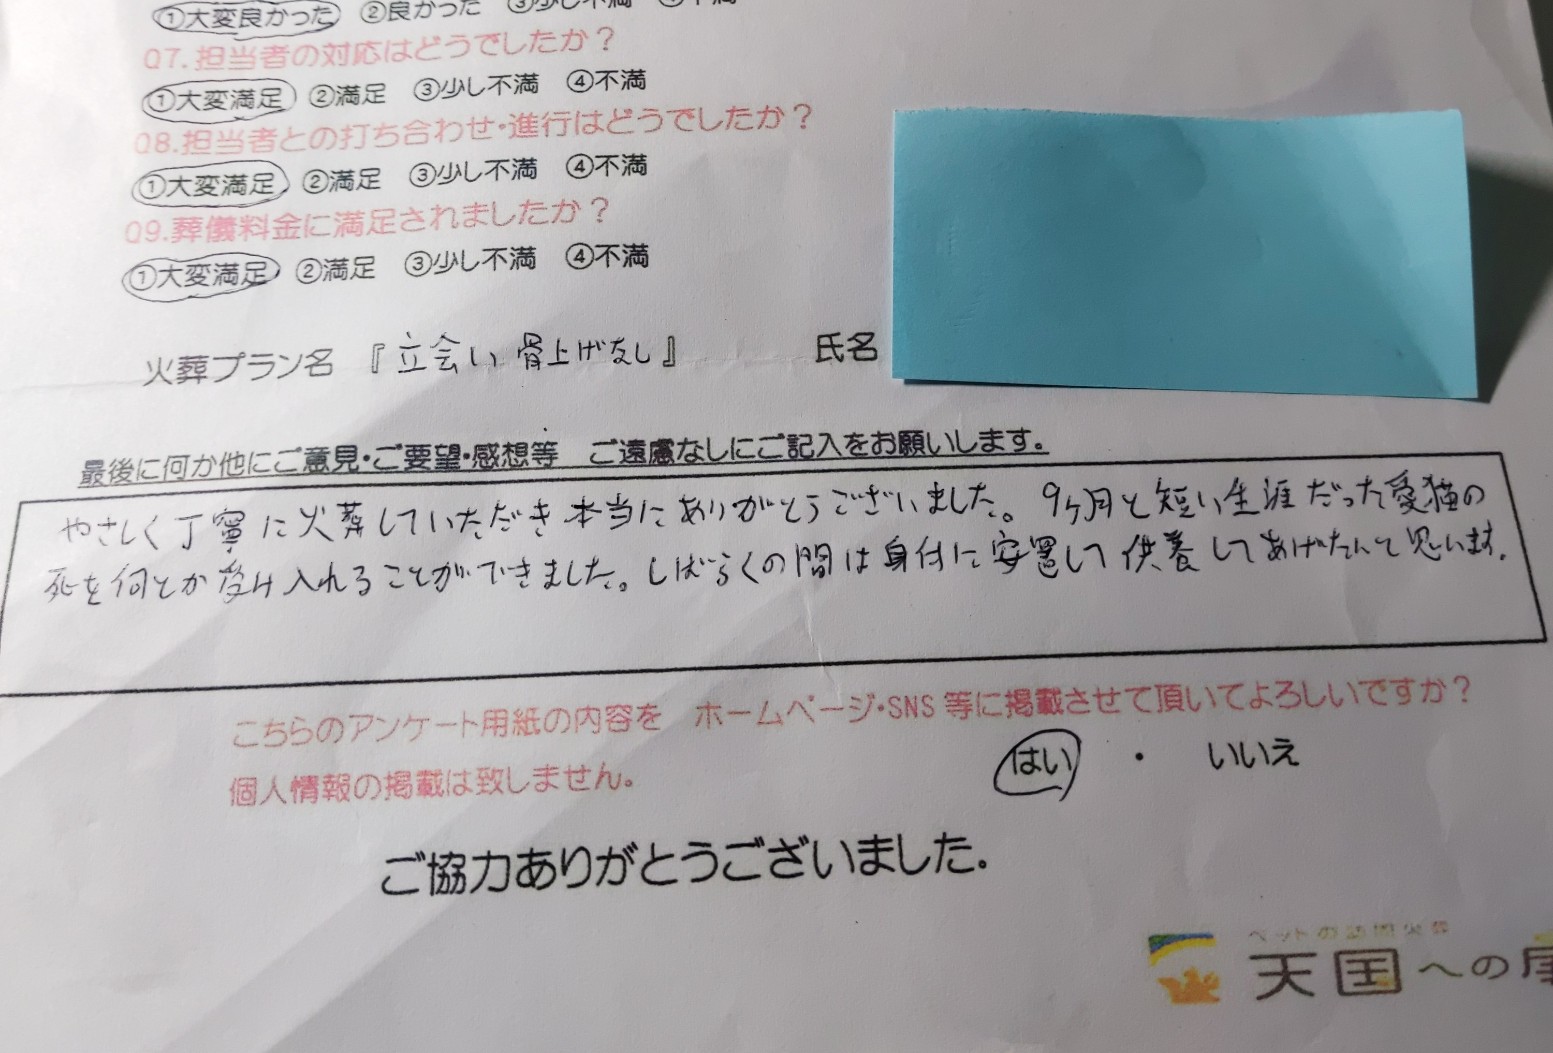 ①大変良かった ②良かった ③少し不満 ④不満
Q7.担当者の対応はどうでしたか？
①大変満足 ②満足 ③少し不満 ④不満
Q8.担当者との打ち合わせ・進行はどうでしたか？
①大変満足 ②満足 ③少し不満 ④不満
Q9.葬儀料金に満足されましたか？
①大変満足 ②満足 ③少し不満 ④不満
火葬プラン名 『立会い 骨上げなし』 氏名
最後に何か他にご意見・ご要望・感想等 ご遠慮なしにご記入をお願いします。
やさしく丁寧に火葬していただき本当にありがとうございました。9ヶ月と短い生涯だった愛猫の
死を何とか受け入れることができました。しばらくの間は身付に安置して供養してあげたいと思います。
こちらのアンケート用紙の内容を ホームページ・SNS等に掲載させて頂いてよろしいですか？
個人情報の掲載は致しません。
はい ・ いいえ
ご協力ありがとうございました。
ペットの訪問火葬
天国への